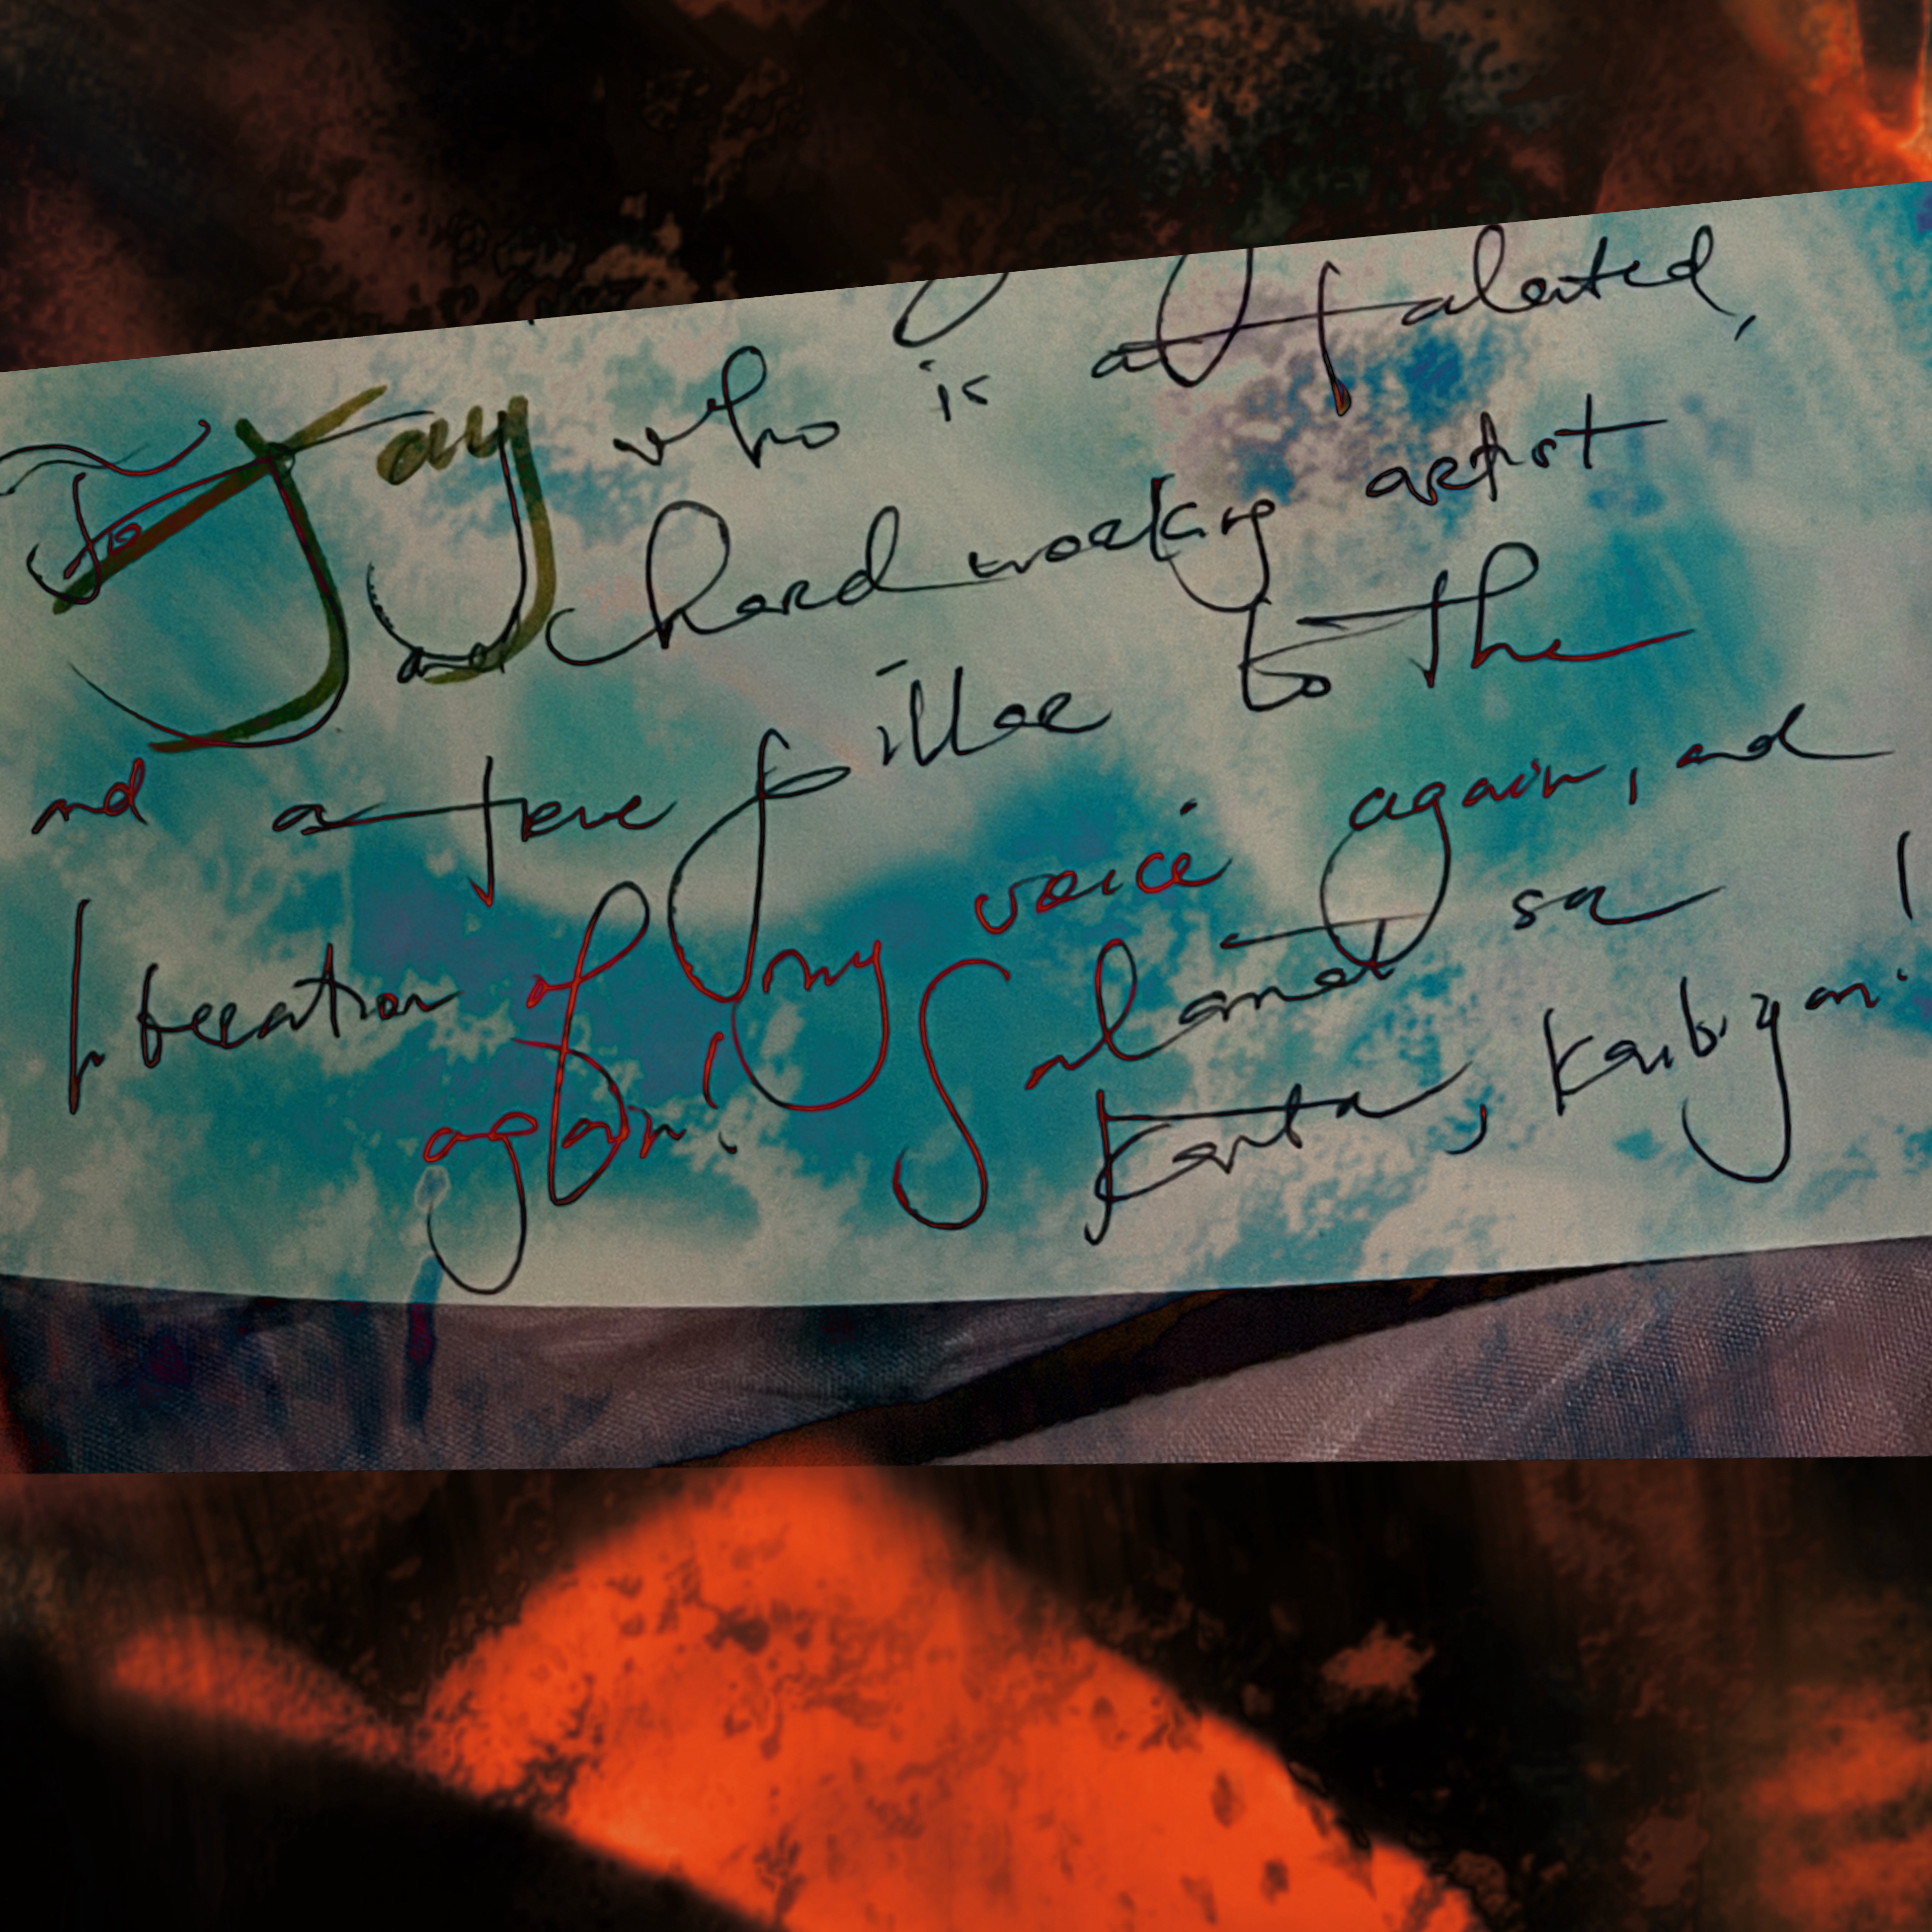 To Jay who is a talented,
and hard working artist
and a true pillar to the
liberation of my voice again, and
again! Salamat sa
Kanta, Kaibigan!